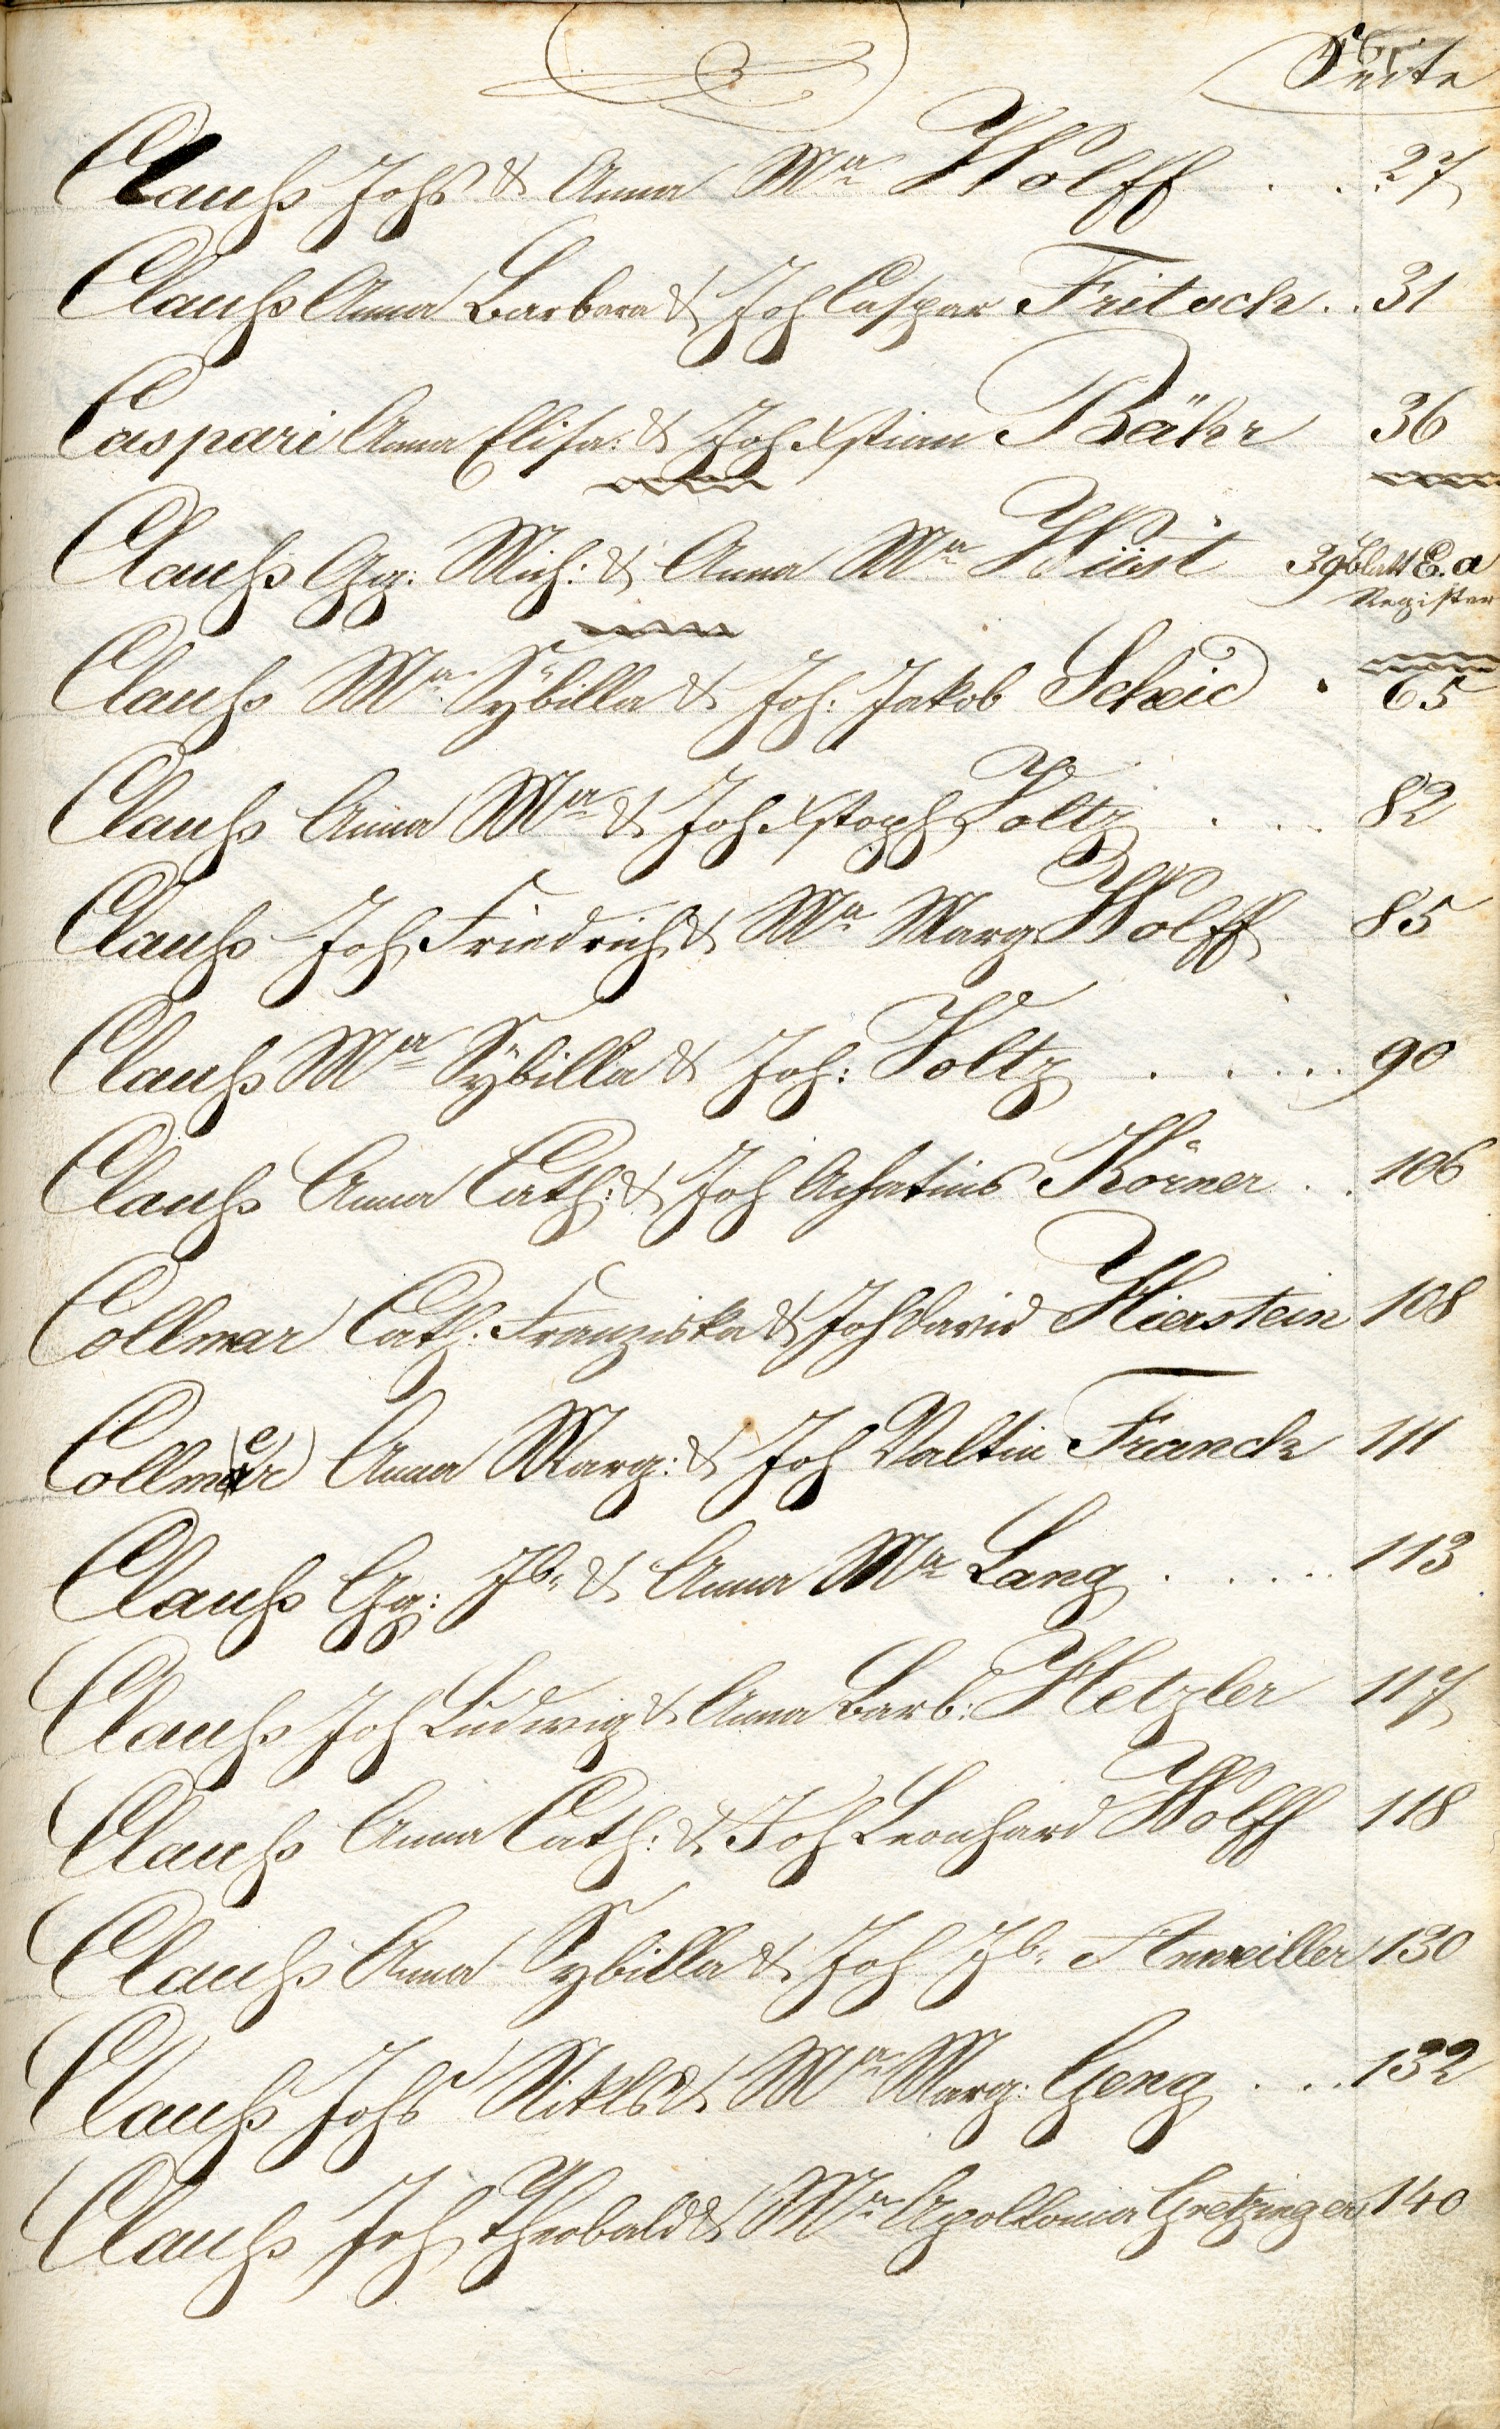 Seite
Clauß Johs & Anna Ma Wolff . . . 27
Clauß Anna Barbara & Joh Caspar Fritsch . . 31
Caspari Anna Elisa: & Joh Xstian Bähr 36
Clauß Gg: Mich: & Anna Ma Wüst 39 blatt E. a
Register
Clauß Ma Sÿbilla & Joh: Jakob Scheid . 65
Clauß Anna Ma & Joh Xstoph Voltz . . . 82
Clauß Joh Friedrich & Ma Marg Wolff 85
Clauß Ma Sÿbilla & Joh: Voltz . . . . . 90
Clauß Anna Cath: & Joh Achatius Körner . . 106
Collmar Cath: Franziska & Joh David Hierstein 108
Collmar (e) Anna Marg: & Joh Valtin Franck 111
Clauß Gg: Jb: & Anna Ma Lang . . . . . 113
Clauß Joh Ludwig & Anna Barb: Hetzler 117
Clauß Anna Cath: & Joh Leonhard Wolff 118
Clauß Anna Sybilla & Joh Jb: 130
Clauß Johs Nikls & Ma Marg: Geng . . . 132
Clauß Joh Theobald & Ma Apollonia Gretzinger 140